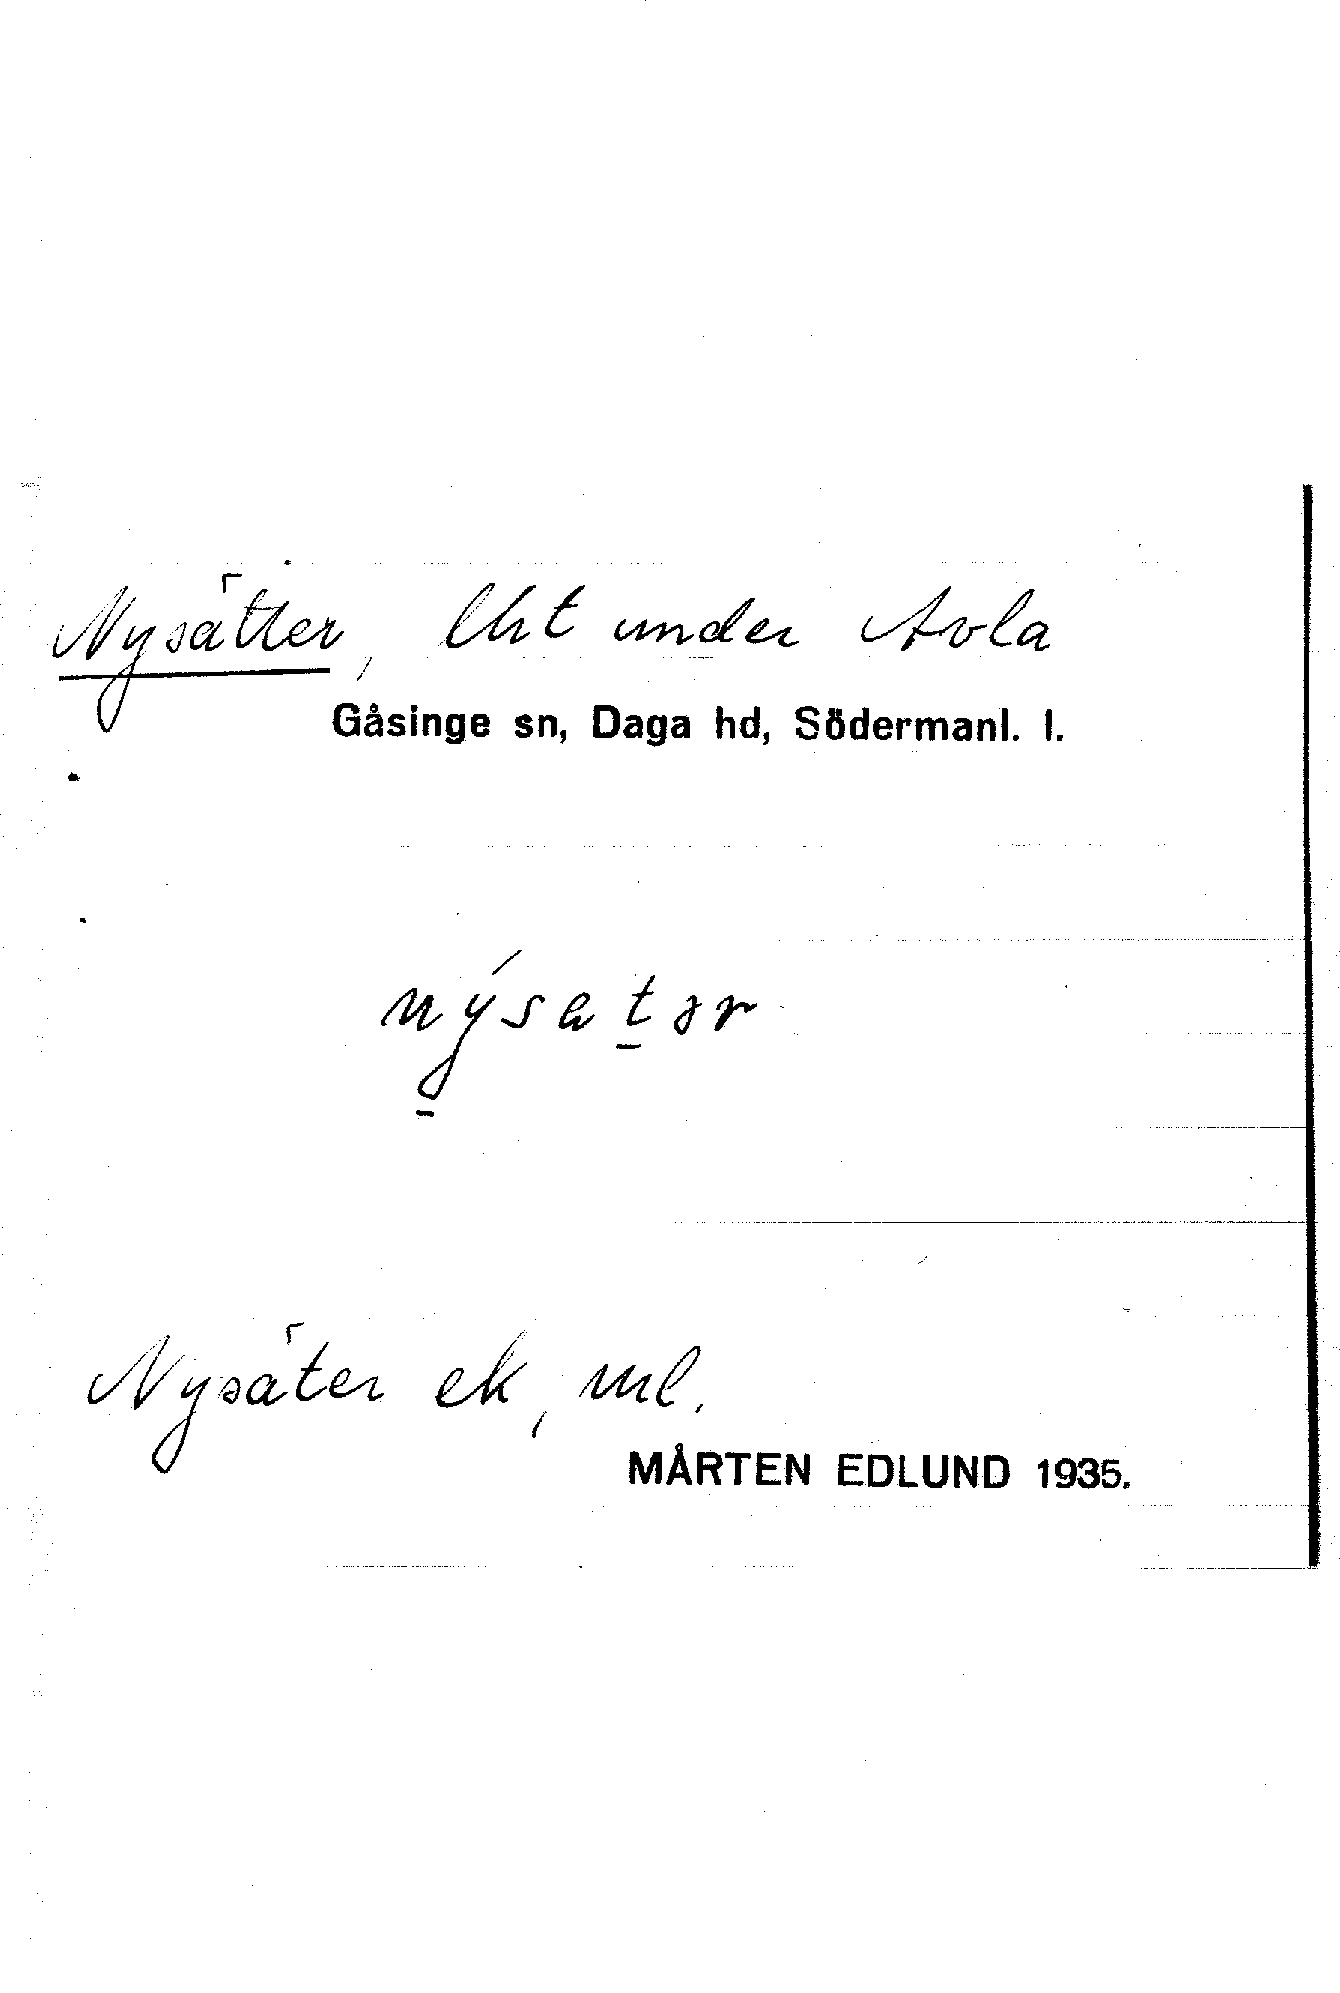 Nysätter, lht under Avla
Gåsinge sn, Daga hd, Södermanl. l.
nýsatər
Nysäter ek, ml.
MÅRTEN EDLUND 1935.